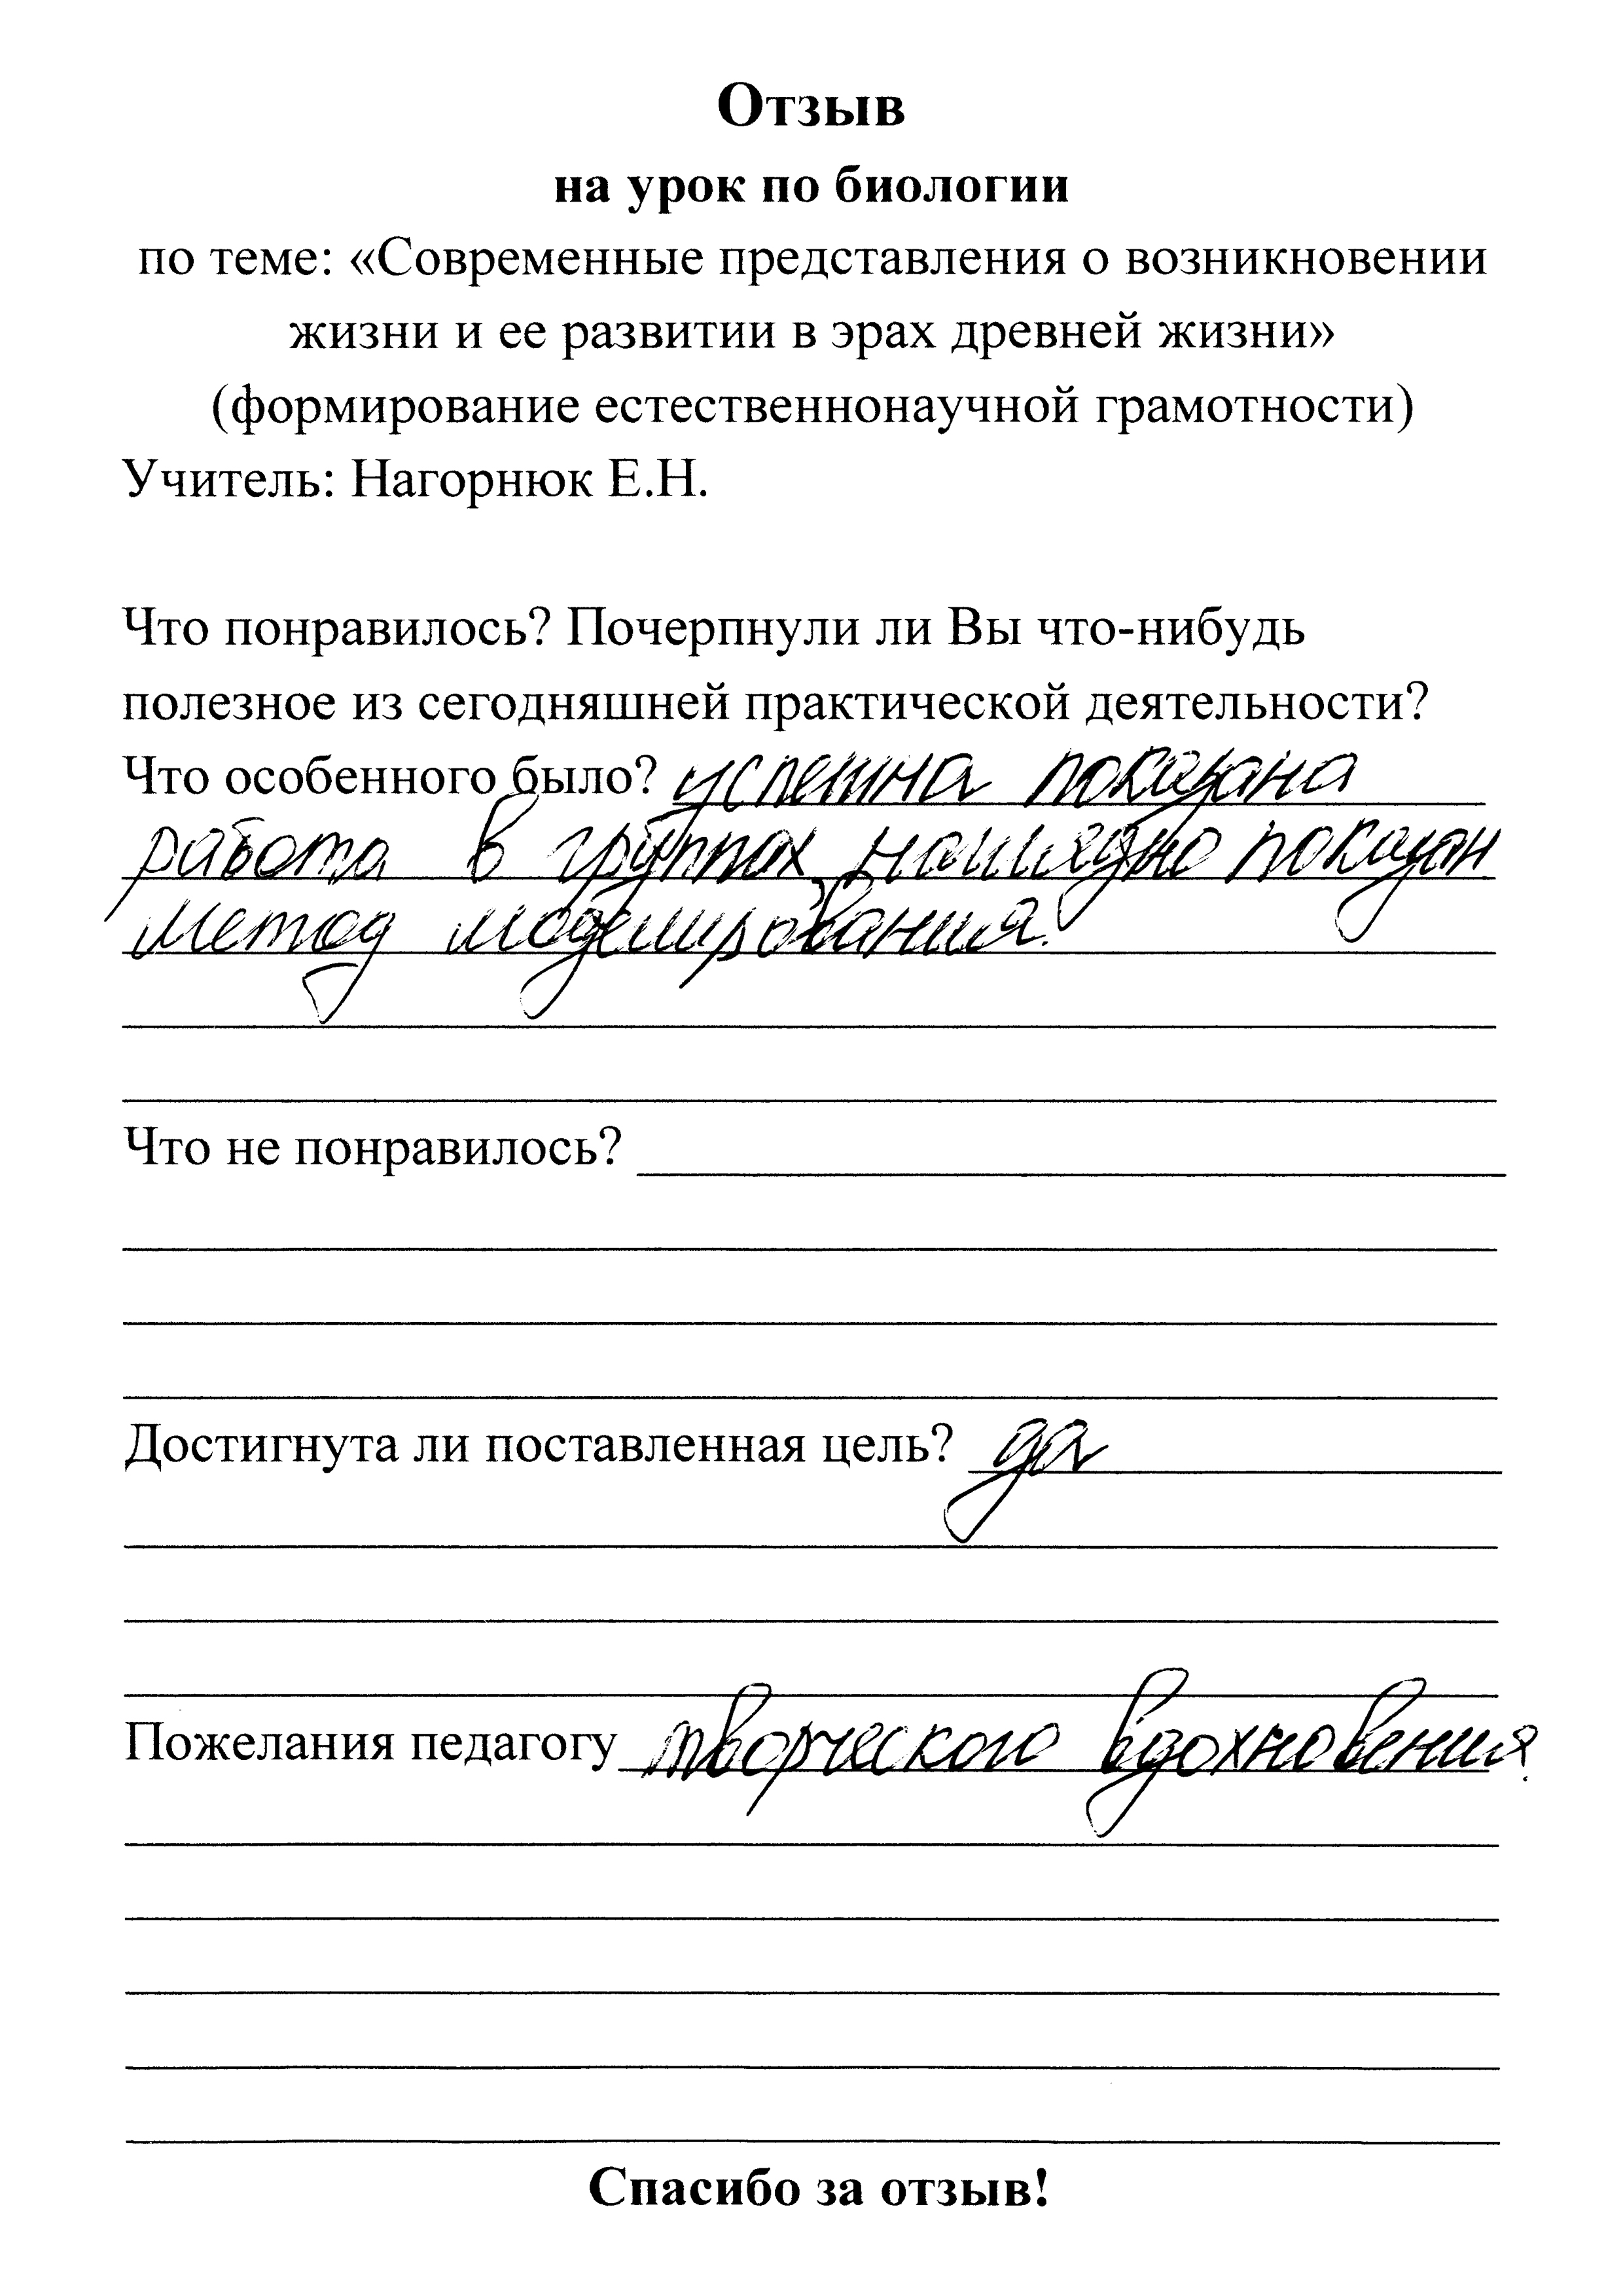 Отзыв
на урок по биологии
по теме: «Современные представления о возникновении
жизни и ее развитии в эрах древней жизни»
(формирование естественнонаучной грамотности)
Учитель: Нагорнюк Е.Н.
Что понравилось? Почерпнули ли Вы что-нибудь
полезное из сегодняшней практической деятельности?
Что особенного было? успешна показана
работа в группах, наглядно показан
метод моделирования.
Что не понравилось?
Достигнута ли поставленная цель? да
Пожелания педагогу творческого вдохновения.
Спасибо за отзыв!